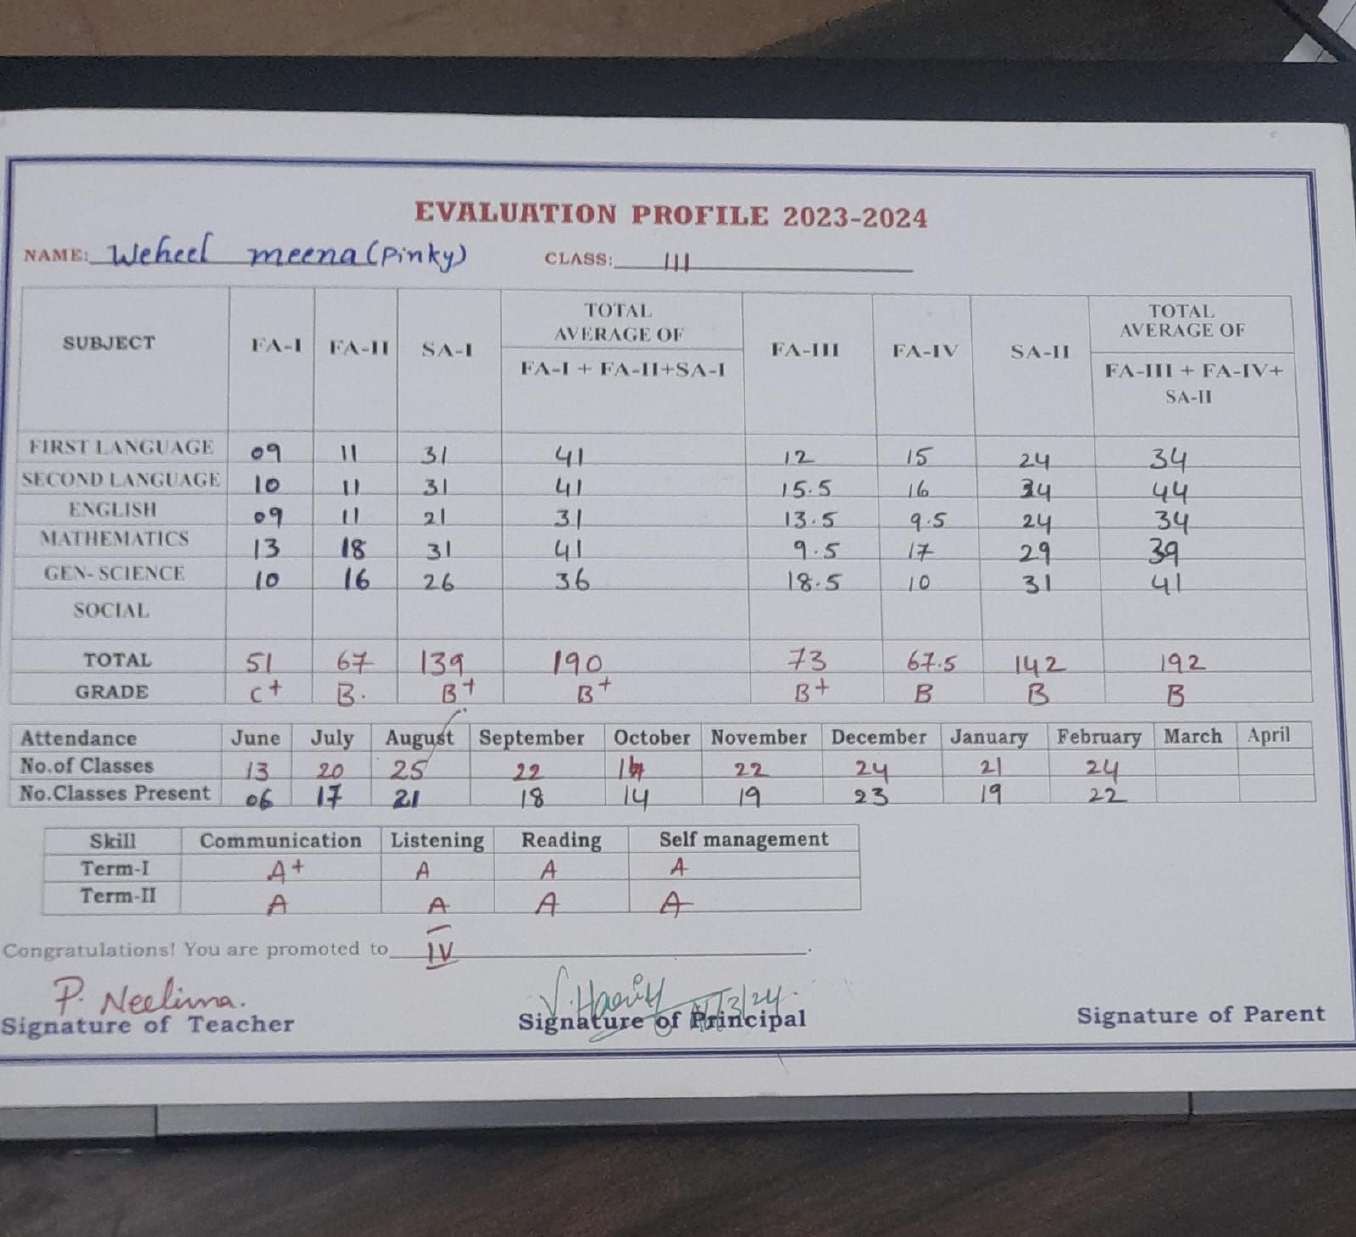 EVALUATION PROFILE 2023-2024
NAME: Weheel meena (Pinky) CLASS: III
SUBJECT FA-I FA-II SA-I TOTAL AVERAGE OF FA-I + FA-II+SA-I FA-III FA-IV SA-II TOTAL AVERAGE OF FA-III + FA-IV+ SA-II
FIRST LANGUAGE 09 11 31 41 12 15 24 34
SECOND LANGUAGE 10 11 31 41 15.5 16 34 44
ENGLISH 09 11 21 31 13.5 9.5 24 34
MATHEMATICS 13 18 31 41 9.5 17 29 39
GEN- SCIENCE 10 16 26 36 18.5 10 31 41
SOCIAL
TOTAL 51 67 139 190 73 67.5 142 192
GRADE C+ B. B+ B+ B+ B B B
Attendance June July August September October November December January February March April
No.of Classes 13 20 25 22 14 22 24 21 24
No.Classes Present 06 17 21 18 14 19 23 19 22
Skill Communication Listening Reading Self management
Term-I A+ A A A
Term-II A A A A
Congratulations! You are promoted to IV .
P. Neelima.
Signature of Teacher Signature of Principal Signature of Parent